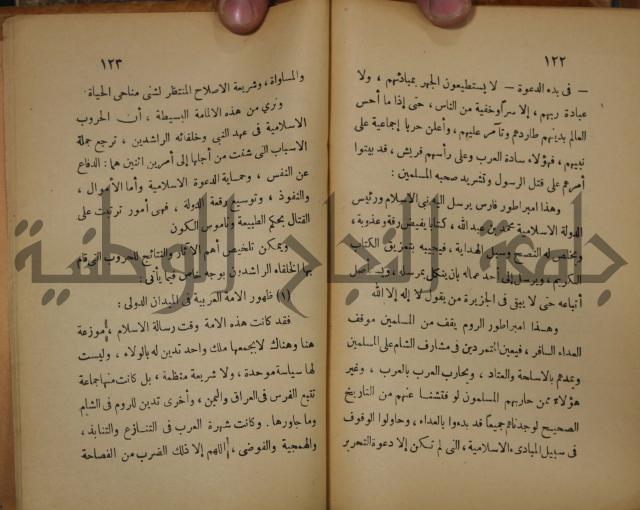 ١٢٢
— فى بدء الدعوة — لا يستطيعون الجهر بمبادئهم ، ولا
عبادة ربهم ، إلا سراً وخفية من الناس ، حتى إذا ما أحس
العالم بدينهم طاردهم وتآمر عليهم ، وأعلن حربا إجماعية على
نبيهم ، فهؤلاء سادة العرب وعلى رأسهم قريش ، قد بيتوا
أمرهم على قتل الرسول وتشريد صحبه المسلمين :
وهذا امبراطور فارس يرسل اليه نبى الاسلام ورئيس
الدولة الاسلامية محمد بن عبد الله ، كتابا يفيض رقة وعذوبة ،
ويخلص له النصح وسبيل الهداية ، فيجيبه بتمزيق الكتاب
الكريم ، ويرسل إلى أحد عماله بان ينكل بمرسله ، ويستأصل
أتباعه حتى لا يبقى فى الجزيرة من يقول لا إله إلا الله
وهذا امبراطور الروم يقف من المسلمين موقف
العداء السافر ، فيعين المتمردين فى مشارف الشام على المسلمين
ويمدهم بالاسلحة والعتاد ، ويحارب العرب بالعرب ، وغير
هؤلاء ممن حاربهم المسلمون لو فتشنا عنهم من التاريخ
الصحيح لوجدناهم جميعا قد بدءوا بالعداء ، وحاولوا الوقوف
فى سبيل المبادىء الاسلامية ، التى لم تكن إلا دعوة التحرير
١٢٣
والمساواة ، وشريعة الاصلاح المنتظر لشتى مناحى الحياة
ونرى من هذه الالمامة البسيطة ، أن الحروب
الاسلامية فى عهد النبى وخلفائه الراشدين ، ترجع جملة
الاسباب التى شنت من أجلها إلى أمرين اثنين هما : الدفاع
عن النفس ، وحماية الدعوة الاسلامية وأما الأموال ،
والنفوذ ، وتوسيع رقعة الدولة ، فهى أمور ترتبت على
القتال بحكم الطبيعة وناموس الكون
ويمكن تلخيص أهم الآثار والنتائج للحروب التى قام
بها الخلفاء الراشدين بوجه خاص فيما يأتى :
(١) ظهور الامة العربية فى الميدان الدولى :
فقد كانت هذه الامة وقت رسالة الاسلام ، موزعة
هنا وهناك لا يجمعها ملك واحد تدين له بالولاء ، وليست
لها سياسة موحدة ، ولا شريعة منظمة ، بل كانت منها جماعة
تتبع الفرس فى العراق واليمن ، وأخرى تدين للروم فى الشام
وما جاورها . وكانت شهرة العرب فى التنازع والتنابذ ،
والهمجية والفوضى ، اللهم إلا ذلك الضرب من الفصاحة
جامعة النجاح الوطنية